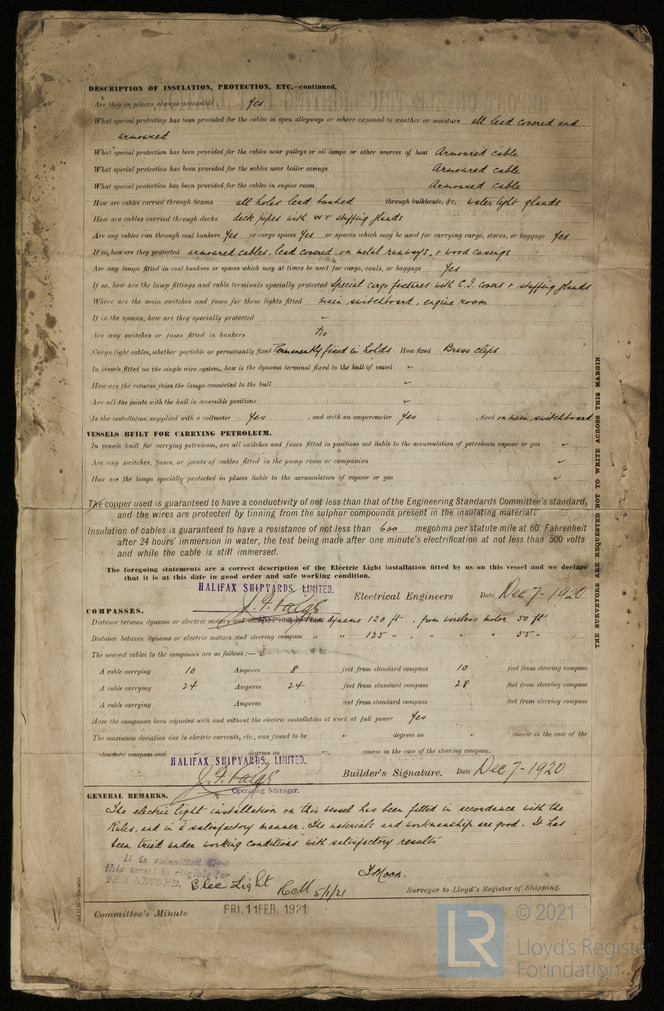 DESCRIPTION OF INSULATION, PROTECTION, ETC.—continued.
Are they in places always accessible Yes
What special protection has been provided for the cables in open alleyways or where exposed to weather or moisture all lead covered and
armoured
What special protection has been provided for the cables near galleys or oil lamps or other sources of heat Armoured cable
What special protection has been provided for the cables near boiler casings Armoured cable
What special protection has been provided for the cables in engine room Armoured cable
How are cables carried through beams all holes lead bushed through bulkheads, &c. water tight glands
How are cables carried through decks deck pipes with WT stuffing glands
Are any cables run through coal bunkers Yes or cargo spaces Yes or spaces which may be used for carrying cargo, stores, or baggage Yes
If so, how are they protected armoured cables, lead covered, on metal runways, + wood casings
Are any lamps fitted in coal bunkers or spaces which may at times be used for cargo, coals, or baggage Yes
If so, how are the lamp fittings and cable terminals specially protected Special cargo fixtures with C.I. covers + stuffing glands
Where are the main switches and fuses for these lights fitted main switchboard, engine room
If in the spaces, how are they specially protected "
Are any switches or fuses fitted in bunkers No
Cargo light cables, whether portable or permanently fixed Permanently fixed in holds How fixed Brass clips
In vessels fitted on the single wire system, how is the dynamo terminal fixed to the hull of vessel "
How are the returns from the lamps connected to the hull "
Are all the joints with the hull in accessible positions "
Is the installation supplied with a voltmeter Yes , and with an amperemeter Yes , fixed on main switchboard
VESSELS BUILT FOR CARRYING PETROLEUM.
In vessels built for carrying petroleum, are all switches and fuses fitted in positions not liable to the accumulation of petroleum vapour or gas "
Are any switches, fuses, or joints of cables fitted in the pump room or companion "
How are the lamps specially protected in places liable to the accumulation of vapour or gas "
The copper used is guaranteed to have a conductivity of not less than that of the Engineering Standards Committee's standard,
and the wires are protected by tinning from the sulphur compounds present in the insulating material.
Insulation of cables is guaranteed to have a resistance of not less than 600 megohms per statute mile at 60° Fahrenheit
after 24 hours' immersion in water, the test being made after one minute's electrification at not less than 500 volts
and while the cable is still immersed.
The foregoing statements are a correct description of the Electric Light installation fitted by us on this vessel and we declare
that it is at this date in good order and safe working condition.
HALIFAX SHIPYARDS, LIMITED.
Electrical Engineers Date Dec 7-1920
COMPASSES.
Distance between dynamo or electric motors and dynamo 120 ft. from wireless motor 50 ft
Distance between dynamo or electric motors and steering compass " " 125 " " " " 55 "
The nearest cables to the compasses are as follows:—
A cable carrying 10 Amperes 8 feet from standard compass 10 feet from steering compass
A cable carrying 24 Amperes 24 feet from standard compass 28 feet from steering compass
A cable carrying Amperes feet from standard compass feet from steering compass
Have the compasses been adjusted with and without the electric installation at work at full power Yes
The maximum deviation due to electric currents, etc., was found to be " degrees on " course in the case of the
standard compass and " degrees on " course in the case of the steering compass.
HALIFAX SHIPYARDS, LIMITED.
Builder's Signature. Date Dec 7-1920
Operating Manager.
GENERAL REMARKS.
The electric light installation on this vessel has been fitted in accordance with the
Rules, and in a satisfactory manner. The materials and workmanship are good. It has
been tried under working conditions with satisfactory results
It is submitted
this vessel is eligible for
THE RECORD. Elec Light 5/1/21
J Moon.
Surveyor to Lloyd's Register of Shipping.
Committee's Minute FRI. 11 FEB. 1921
THE SURVEYORS ARE REQUESTED NOT TO WRITE ACROSS THIS MARGIN
LR
© 2021
Lloyd's Register
Foundation